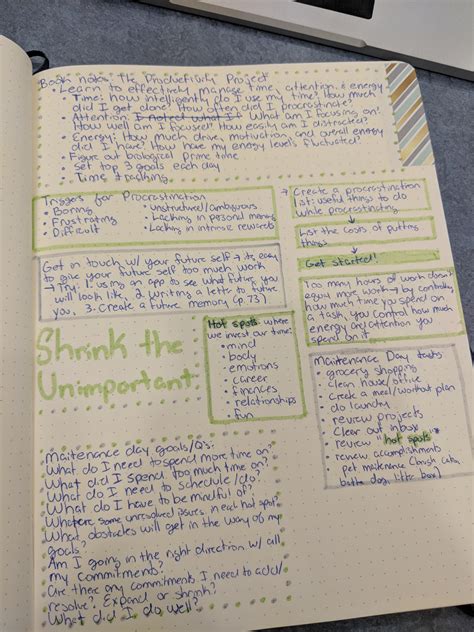 Book notes: The Productivity Project
• Learn to effectively manage time, attention, & energy
• Time: how intelligently do I use my time? How much
did I get done? How often did I procrastinate?
• Attention: What am I focusing on?
How well am I focused? How easily am I distracted?
• Energy: How much drive, motivation, and overall energy
did I have? How have my energy levels fluctuated?
• Figure out biological prime time
• Set top 3 goals each day
• Time tracking
Triggers for Procrastination
• Boring
• Frustrating
• Difficult
• unstructured/ambiguous
• Lacking in personal meaning
• Lacking in intrinsic rewards
→ Create a procrastination
list: useful things to do
while procrastinating
List the costs of putting
things
Get started!
Get in touch w/ your future self → its easy
to give your future self too much work
→ Try: 1. using an app to see what future you
will look like, 2. Writing a letter to future
you, 3. Create a future memory (p.73)
Too many hours of work doesn't
equal more work → by controlling
how much time you spend on
a task, you control how much
energy and attention you
spend on it
Shrink the
Unimportant
Hot spots: where
we invest our time:
• mind
• body
• emotions
• career
• finances
• relationships
• fun
Maintenance Day tasks:
• grocery shopping
• clean house/office
• create a meal/workout plan
• do laundry
• review projects
• Clear out inbox
• review "hot spots"
• review accomplishments
• pet maitenance (brush cats,
bathe dog, litter box)
Maitenance day goals/Q's:
What do I need to spend more time on?
What did I spend too much time on?
What do I need to schedule/do?
What do I have to be mindful of?
What are some unresolved issues in each hot spot?
What obstacles will get in the way of my
goals?
Am I going in the right direction w/ all
my commitments?
Are there any commitments I need to add/
resolve? Expand or shrink?
What did I do well?